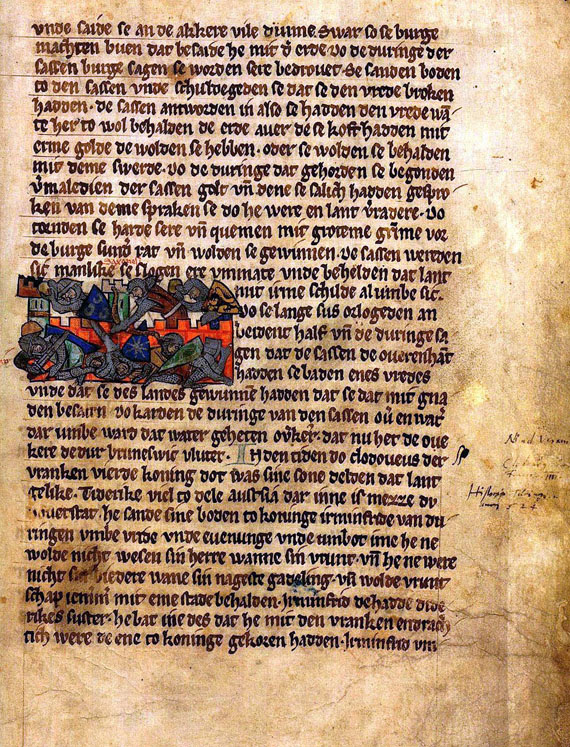 vnde saide se an de akkere vile dunne. Swar so se burge
machten buen dat besaide he mit d̾ erde. Vo de duringe der
sassen burge sagen se worden sere bedrouet. Se sanden boden
to den sassen vnde schuldegeden se dat se den vrede broken
hadden. de sassen antworden in also se hadden den vrede wā
te her to wol behalden de erde auer de se koft hadden mit
erme golde de wolden se hebben. oder se wolden se behalden
mit deme swerde. vo de duringe dat gehorden se begonden
v̾maledien der sassen golt vn̄ dene se salich hadden gespro
ken van deme spraken se do he were en lant v̾radere. Vo
randen se harde sere vn̄ quemen mit groteme gr̄me vor
de burge sund̾ rat vn̄ wolden se gewinnen. De sassen werden
sic manlike se slogen ere vmmate vnde behelden dat lant
mit irme schilde al vmbe sic.
Vo se lange sus orlogeden an
beident half vn̄ de duringe sa
gen dat de sassen de ouerenhāt
hadden se baden enes vredes
vnde dat se des landes gewinne hadden dat se dat mit gna
den besatin karden de duringe van den sassen
dar vmbe ward dat water geheten ou̾ker. dat nu her de oue
kere dedur bruneswic vlutet. In den tiden do clodoueus der
vranken vierde koning dot was sine sone delden dat lant
gelike. Tiderike viel to dele austria dar inne is mezze dv
he sande sine boden to koninge irminfride van du
ringen vmbe vrede vnde euenunge vnde umbot ime he ne
wolde nicht wesen sin herre wanne sin vrunt vn̄ he ne were
nicht sin biedere wane sin nageste gadeling. vn̄ wolde vrunt
schap mit eme stade behalden. Irminfrid de hadde dide
rikes suster. he bat ine des dat he mit den vranken endrach
tich were de ene to koninge gekoren hadden. Irminfrid vn̄